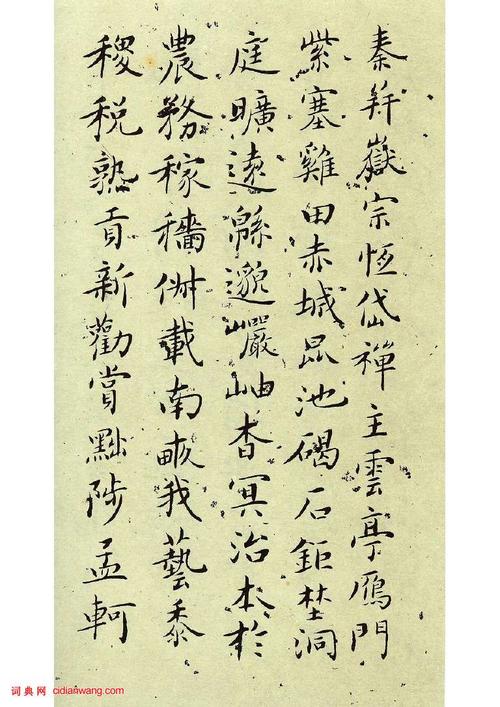 秦并嶽宗恆岱禪主雲亭鴈門
紫塞雞田赤城昆池碣石鉅埜洞
庭曠遠緜邈巖岫杳冥治本於
農務稼穡俶載南畝我藝黍
稷稅熟貢新勸賞黜陟孟軻
词典网 cidianwang.com